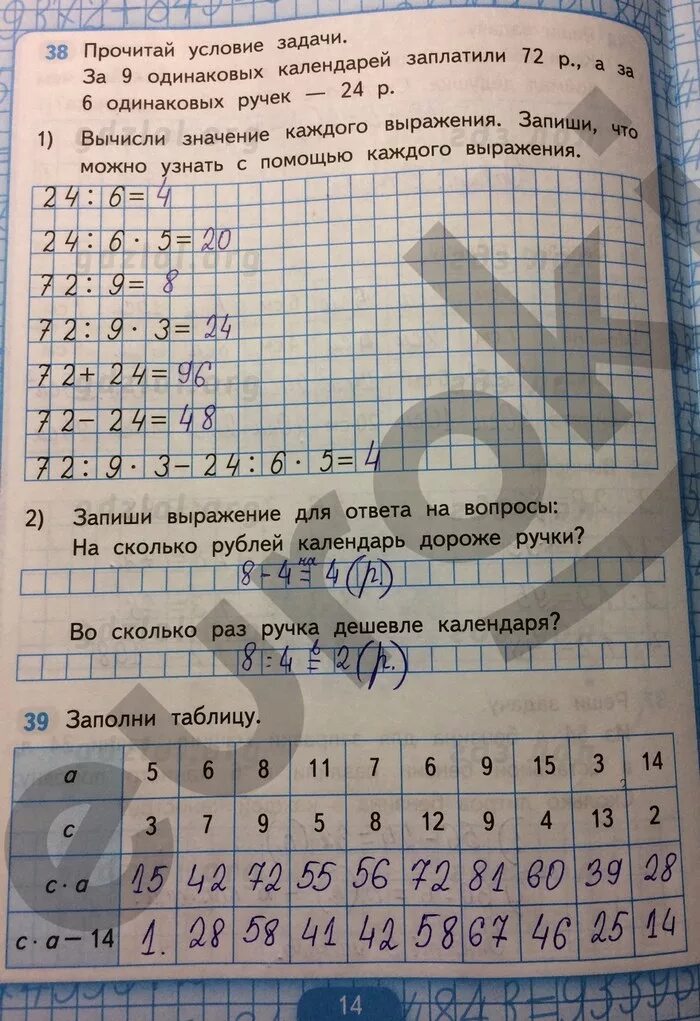 38 Прочитай условие задачи.
За 9 одинаковых календарей заплатили 72 р., а за
6 одинаковых ручек — 24 р.
1) Вычисли значение каждого выражения. Запиши, что
можно узнать с помощью каждого выражения.
24 : 6 = 4
24 : 6 · 5 = 20
72 : 9 = 8
72 : 9 · 3 = 24
72 + 24 = 96
72 − 24 = 48
72 : 9 · 3 − 24 : 6 · 5 = 4
2) Запиши выражение для ответа на вопросы:
На сколько рублей календарь дороже ручки?
на
8 − 4 = 4 (р.)
Во сколько раз ручка дешевле календаря?
в
8 : 4 = 2 (р.)
39 Заполни таблицу.
a 5 6 8 11 7 6 9 15 3 14
c 3 7 9 5 8 12 9 4 13 2
c · a 15 42 72 55 56 72 81 60 39 28
c · a − 14 1. 28 58 41 42 58 67 46 25 14
14
euroki